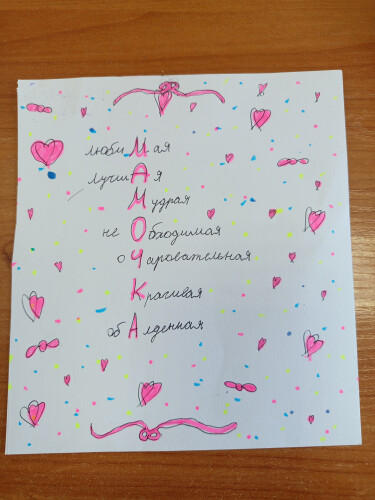 любиМая
лучшАя
Мудрая
не Обходимая
оЧаровательная
Красивая
обАлденная